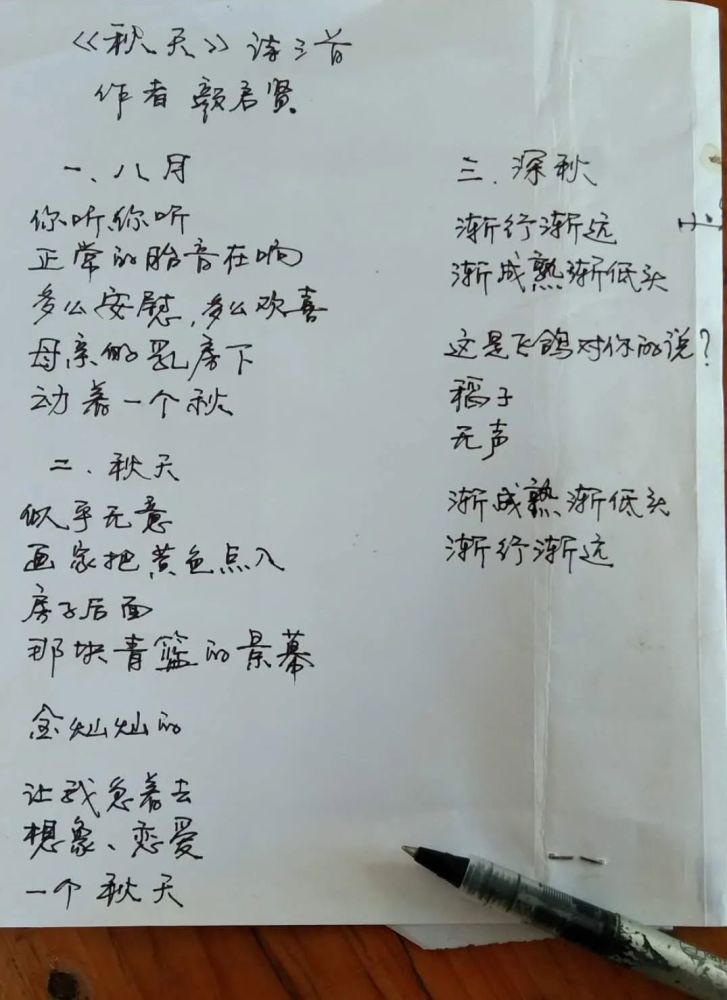 《秋天》诗三首
作者 颜启贤
一、八月
你听你听
正常的胎音在响
多么安慰,多么欢喜
母亲的乳房下
动着一个秋
二、秋天
似乎无意
画家把黄色点入
房子后面
那块青篮的景幕
金灿灿的
让我急着去
想象、恋爱
一个秋天
三、深秋
渐行渐远
渐成熟渐低头
这是飞鸽对你的说?
稻子
无声
渐成熟渐低头
渐行渐远